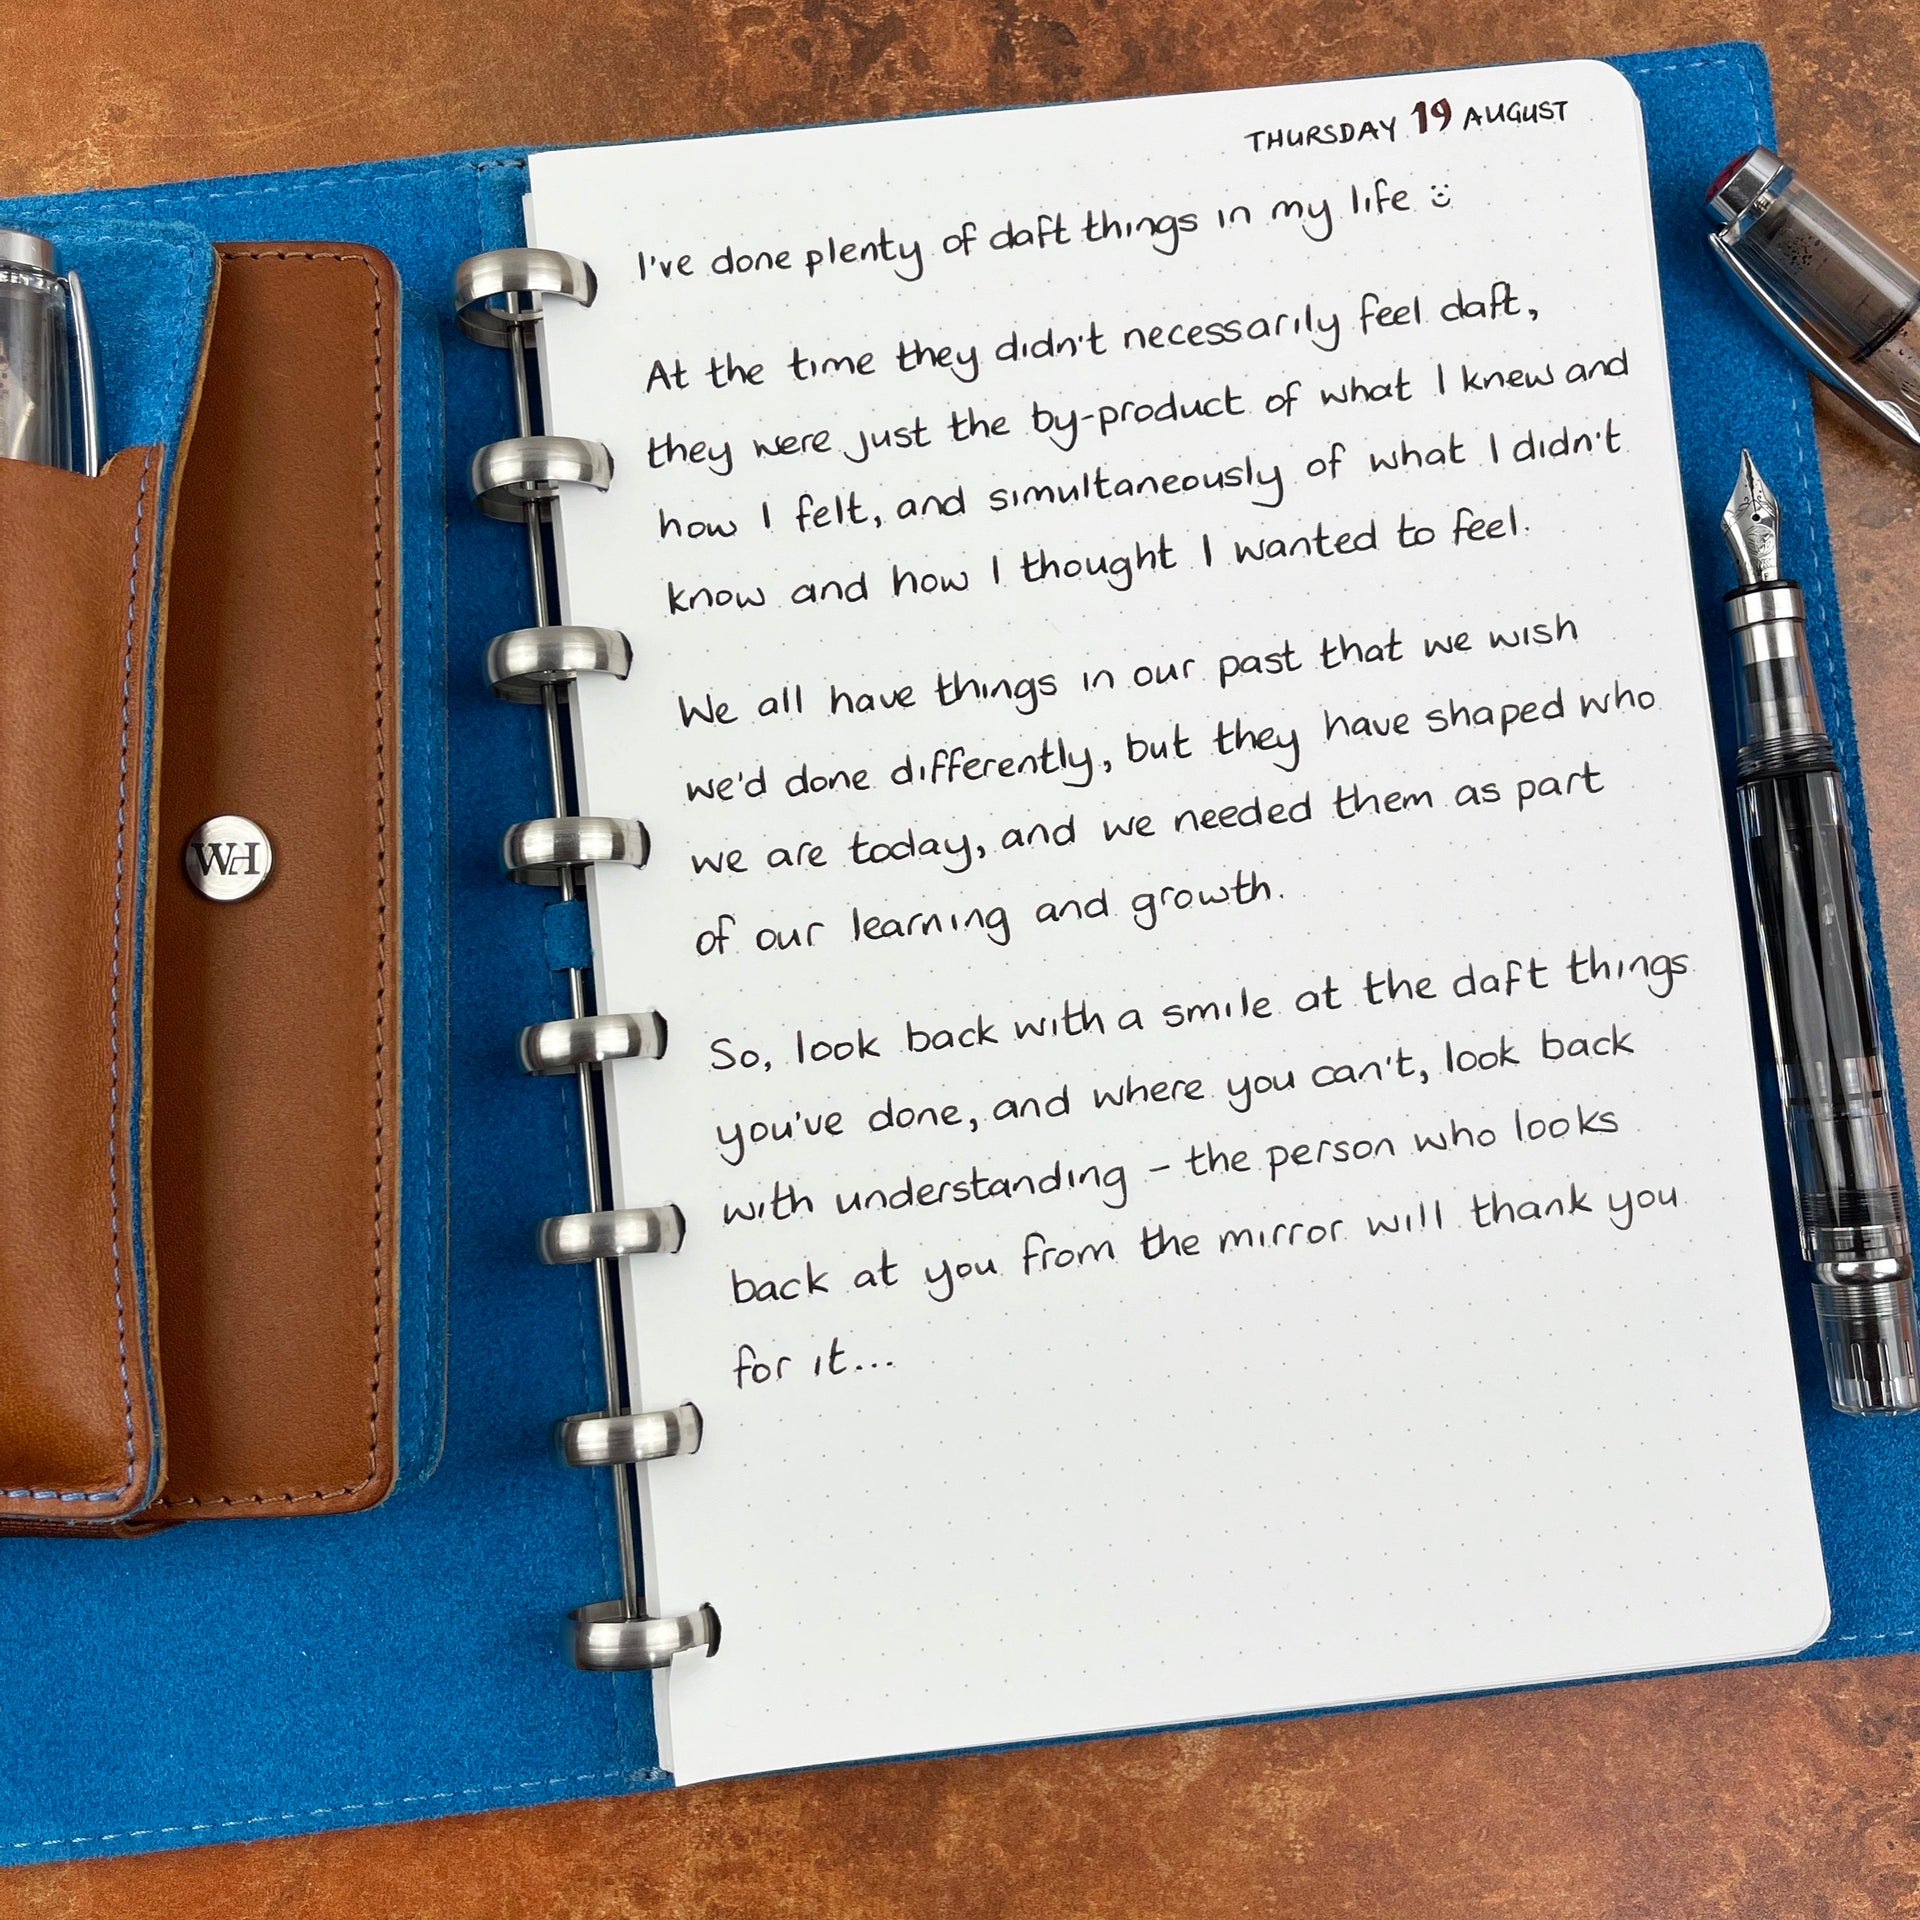 THURSDAY 19 AUGUST
I've done plenty of daft things in my life :)
At the time they didn't necessarily feel daft,
they were just the by-product of what I knew and
how I felt, and simultaneously of what I didn't
know and how I thought I wanted to feel.
We all have things in our past that we wish
we'd done differently, but they have shaped who
we are today, and we needed them as part
of our learning and growth.
So, look back with a smile at the daft things
you've done, and where you can't, look back
with understanding – the person who looks
back at you from the mirror will thank you
for it...
WH